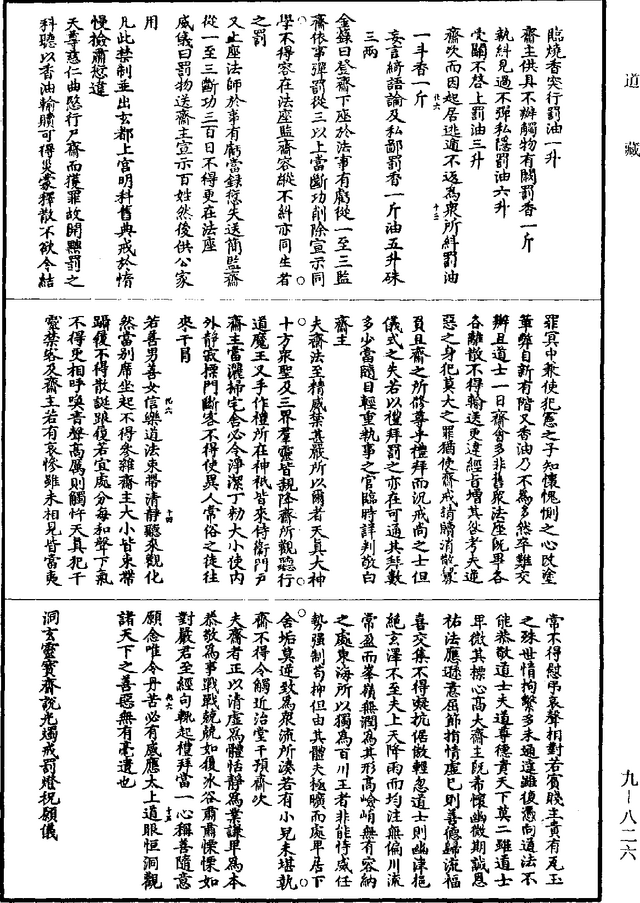 道藏
臨燒香突行罰油一升
齋主供具不辦觸物有闕罰香一斤
執糾見過不彈私隱罰油六升
受關不啓上罰油三升
齋次而因起居逃遁不返為衆所糾罰油
一斗香一斤
妄言綺語論及私鄙罰香一斤油五升硃
三兩
金籙曰登齋下座於法事有虧從一至三監
齋依事彈罰從三以上當斷功削除宣示同
學不得容在法座監齋容縱不糾亦同生者
之罰
又止座法師於事有虧當録愆失送簡監齋
從一至三斷功三百日不得更在法座
威儀曰罰物送齋主宣示百姓然後供公家
用
凡此禁制並出玄都上宮明科舊典戒於惰
慢撿肅愆違
天尊慈仁曲愍行尸齋而獲罪故開黜罰之
科聽以香油輸贖可得災蒙釋散不欲令結
罪冥中兼使犯愆之子知懷愧惻之心改塗
革弊自新有階又香油乃不為多然卒難交
辦且道士一日齋會多非舊衆法座既畢各
各離散不得輸送更違經旨增其從考夫違
惡之身犯莫大之罪猶使齋戒請贖消散
且齋之所修尊乎禮拜而況戒尚之士但
儀式之失若以禮拜罰之亦在可通其拜數
多少當隨目輕重執事之官臨時詳判敬白
齋主
夫齋法至精威禁甚嚴所以爾者天真大神
十方衆聖及三界羣靈皆親降齋所觀聽行
道魔王叉手作禮所在神祇皆來侍衛門戶
齋主當灑掃宅舍必令淨潔丁勑大小使内
外靜寂標門斷客不得使異人常俗之徒往
來干冒
若善男善女信樂道法束帶清靜聽來觀化
然當別席坐起不得參雜齋主大小皆束帶
躡履不得散誕踉傻若宜處分每和聲下氣
不得更相呼喚音聲高厲則觸忤天真犯干
靈禁客及齋主若有哀慘雖未相見皆當夷
常不得慰弔哀聲相對若賓賤主貴有瓦玉
之殊世情拘繫多未通違雖復憑向道法不
能恭敬道士夫道尊德貴天下莫二雖道士
卑微其標心高大齋主既希懷幽微期誠恩
祐法應遜意屈節捐情虛己則善德歸流福
喜交集不得礙抗倨傲輕忽道士則幽津挹
絕玄澤不至夫上天降雨而均注無偏川流
常盈而峯嶺無潤為其形高嶮峭無有容納
之處東海所以獨為百川王者非能恃威任
勢強制苟抑但由其體大極曠而處卑居下
含垢莫逆致為衆流所湊若有小兒未堪執
齋不得令觸近治堂干預齋次
夫齋者正以清虛為體恬靜為業謙卑為本
恭敬為事戰戰兢兢如履冰谷肅肅慄慄如
對嚴君至經句輒起禮拜當一心稱善隨意
願念唯令丹苦必有感應太上道眼恒洞觀
諸天下之善惡無有毫遺也
洞玄靈寶齋說光燭戒罰燈祝願儀
九—八二六